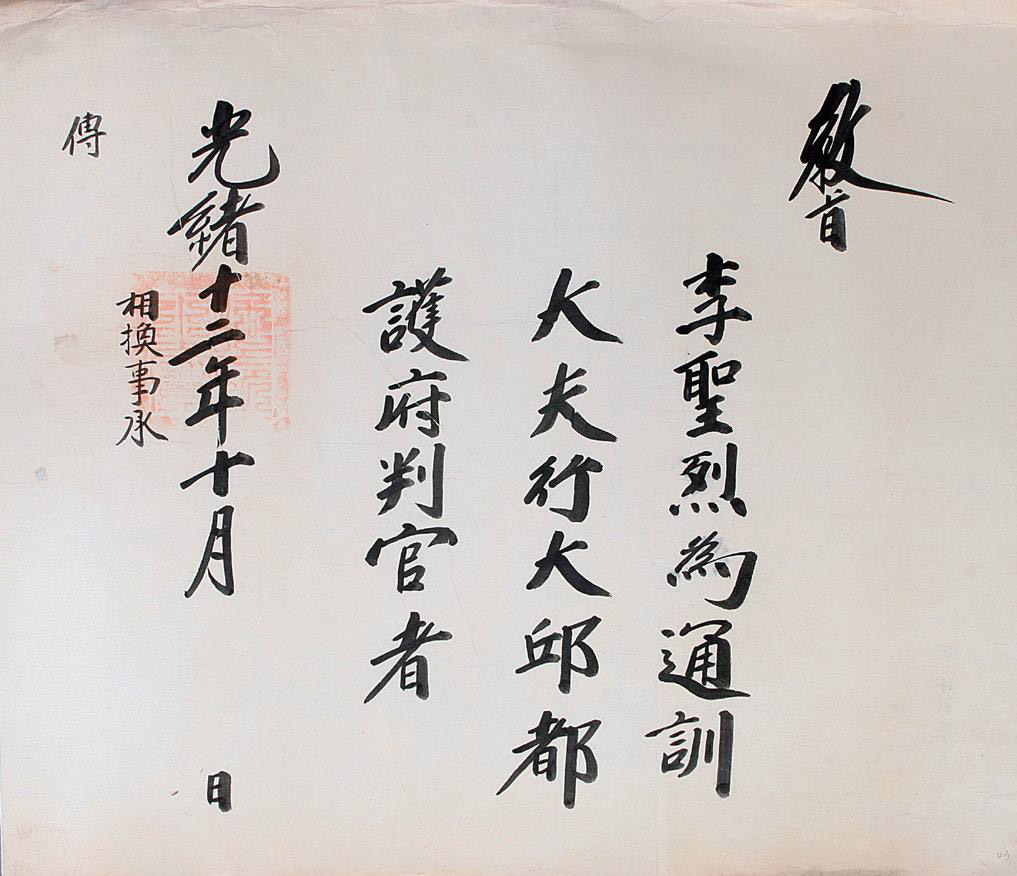 敎旨
李聖烈為通訓
大夫行大邱都
護府判官者
光緒十二年十月 日
相換事承
傳